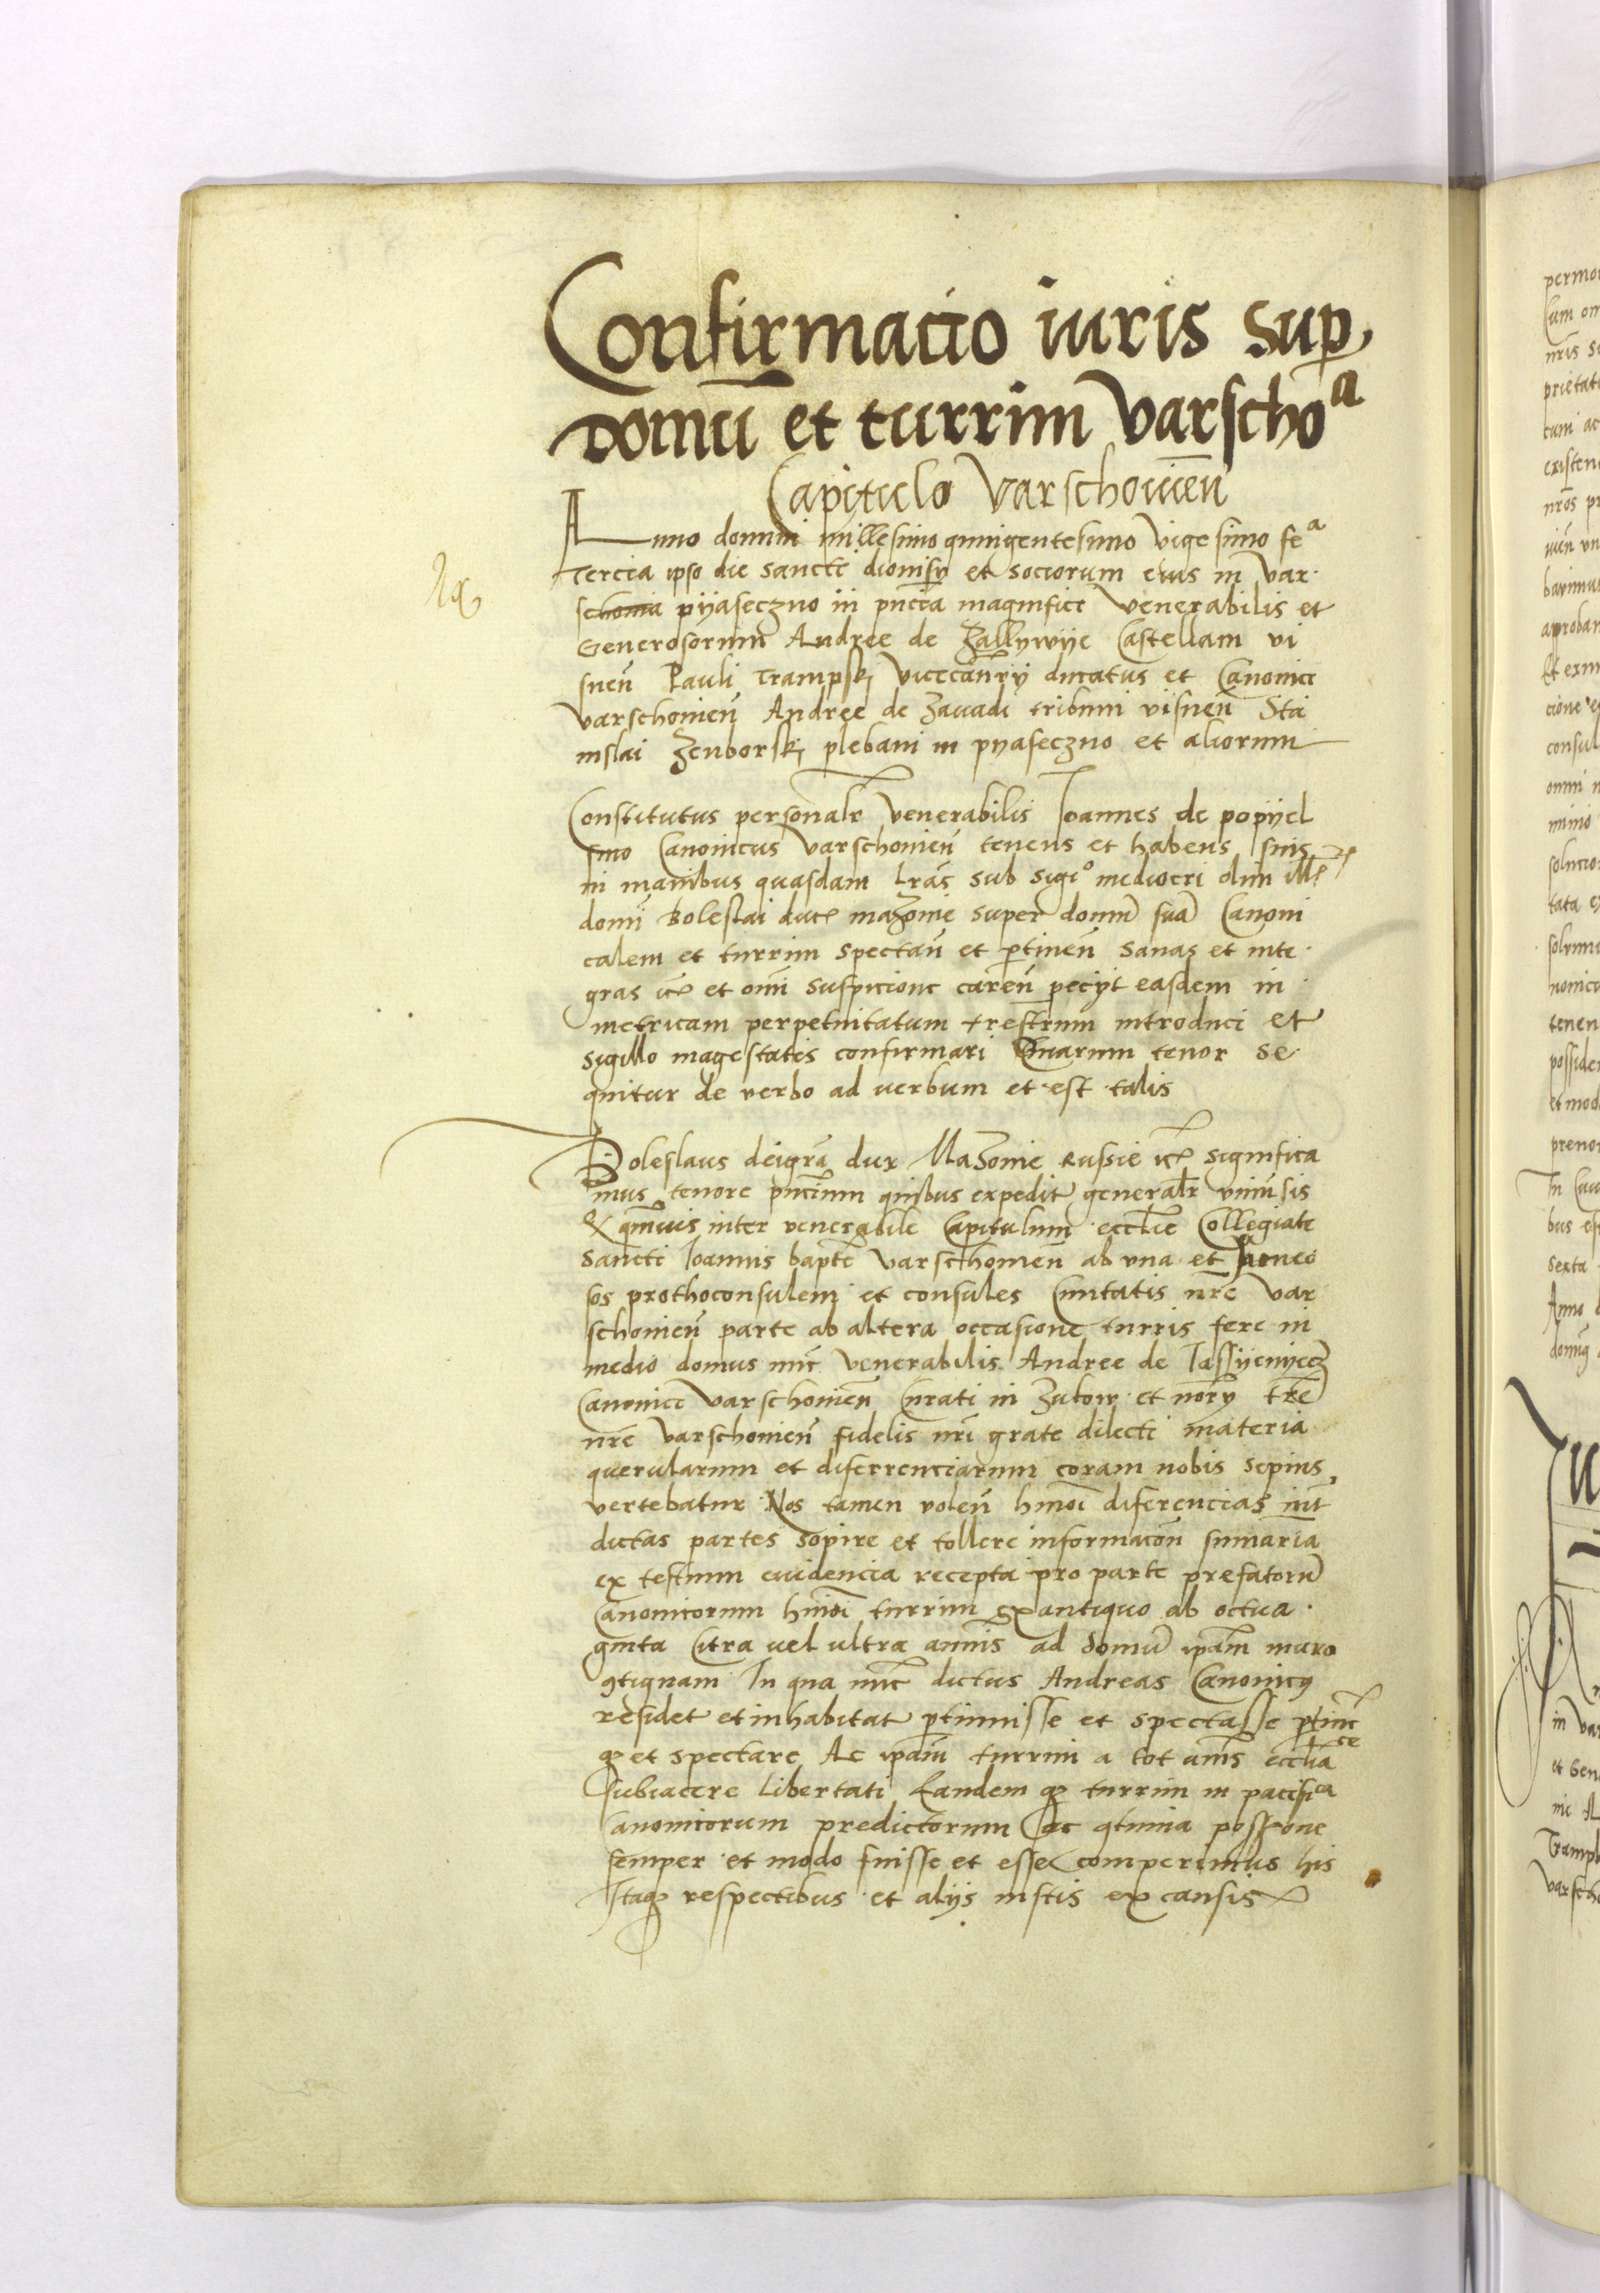 Confirmacio iuris sup
Domū et turrim Varschoª
Capitulo Varschouien̄
Anno domini millesimo quingentesimo vigesimo feª
Tercia ipso die sancti dionisÿ et sociorum eius in Var
schonia pÿaseczno in pn̄cia magnifici Venerabilis et
Generosorum Andree de Zallÿwÿe Castellani vi
snen̄ Pauli Trampskj vicecan̄rÿ ducatus et Canonici
varschouien̄ Andree de Zauadi tribuni visnen̄ Sta
nislai Zenborskj plebani in pyaseczno et aliorum
Constitutus personalr̄ Venerabilis Ioannes de popÿel
sino Canonicus varschouien̄ tenens et habens suis
in manibus quasdam lr̄as sub sigº mediocri olim ill
domī Boleslai duc mazouie super domū suā Canoni
calem et turrim spectan̄ et ptinen̄ sanas et inte
gras ic et om̄i suspicione caren̄ peciÿt easdem in
metricam perpetuitatum trestrum introduci et
sigillo magestatis confirmari Quarum tenor se
quitur de verbo ad uerbum et est talis
Boleslaus deigrā dux Mazouie Russie ic significa
mus tenore pn̄cium quibus expedit generalr̄ uniu̅sis
Q qm̄uis inter venerabile Capitulum eccl̄ie Collegiate
Sancti Ioannis bapte varschouien̄ ab una et honeo
sos prothoconsulem et consules Ciuitatis nr̄e Var
schouien̄ parte ab altera occasione turris fere in
medio domus nūc Venerabilis Andree de Iassÿenÿecz
Canonici varschouien̄ Curati in Zukow et nor̄y tr̄e
nr̄e varschouien̄ fidelis nr̄i grate dilecti materia
querularum et diferrenciarum coram nobis sepius
vertebatur Nos tamen volen̄ hmōi diferencias int̄
dictas partes sopire et tollere informacōn sumaria
ex testium euidencia recepta pro parte prefatorū
Canonicorum hmōi turrim ex antiquo ab octua
ginta Citra uel ultra annis ad domū ipām muro
gtiguam In qua nūc dictus Andreas Canonicus
residet et inhabitat ptinuisse et spectasse ptine
qz et spectare Ac ipām turrim a tot annis eccliaͨᵉ
subiacere libertati Eandem qz turrim in pacificª
Canonicorum predictorum ac gtinua possione
semper et modo fuisse et esse comperimus his
Itaqz respectibus et alÿs iustis ex causis